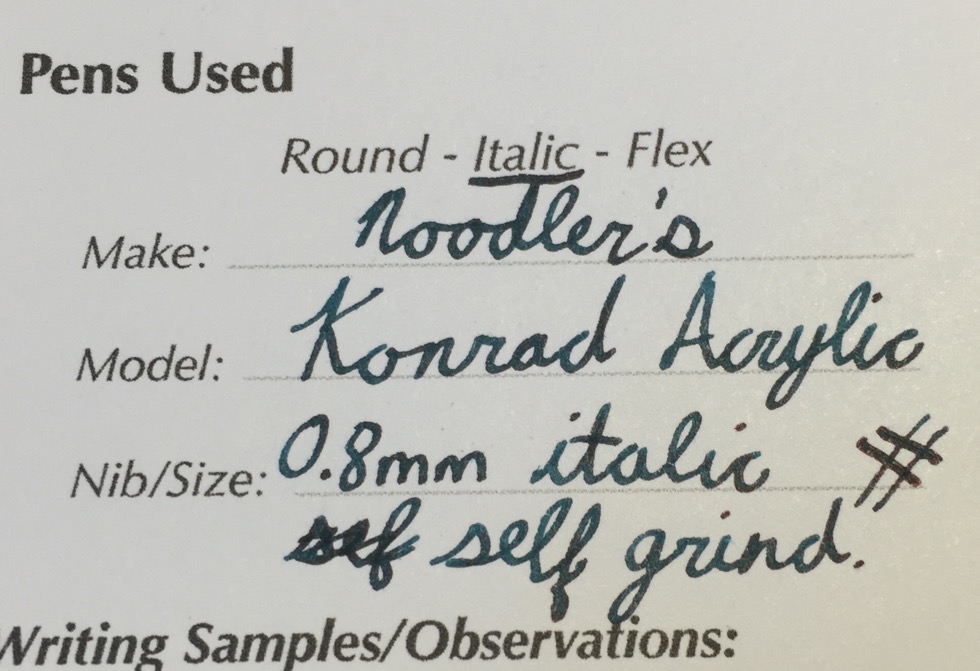 Pens Used
Round - Italic - Flex
Make: Noodler's
Model: Konrad Acrylic
Nib/Size: 0.8mm italic #
self grind.
Writing Samples/Observations: